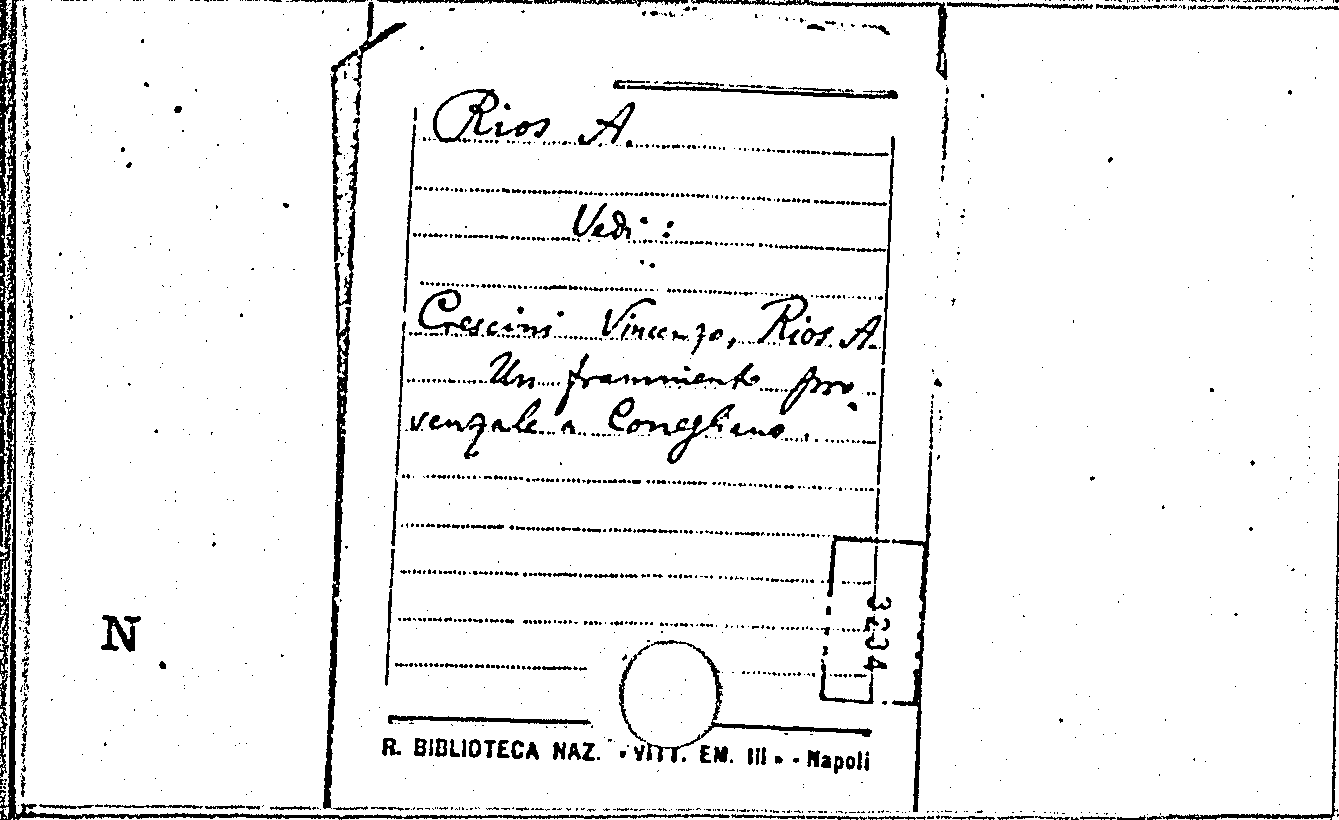 Rios A.
Vedi :
Crescini Vincenzo, Rios A.
Un frammento pro
venzale a Conegliano.
3234
N
R. BIBLIOTECA NAZ. « VITT. EM. III » - Napoli